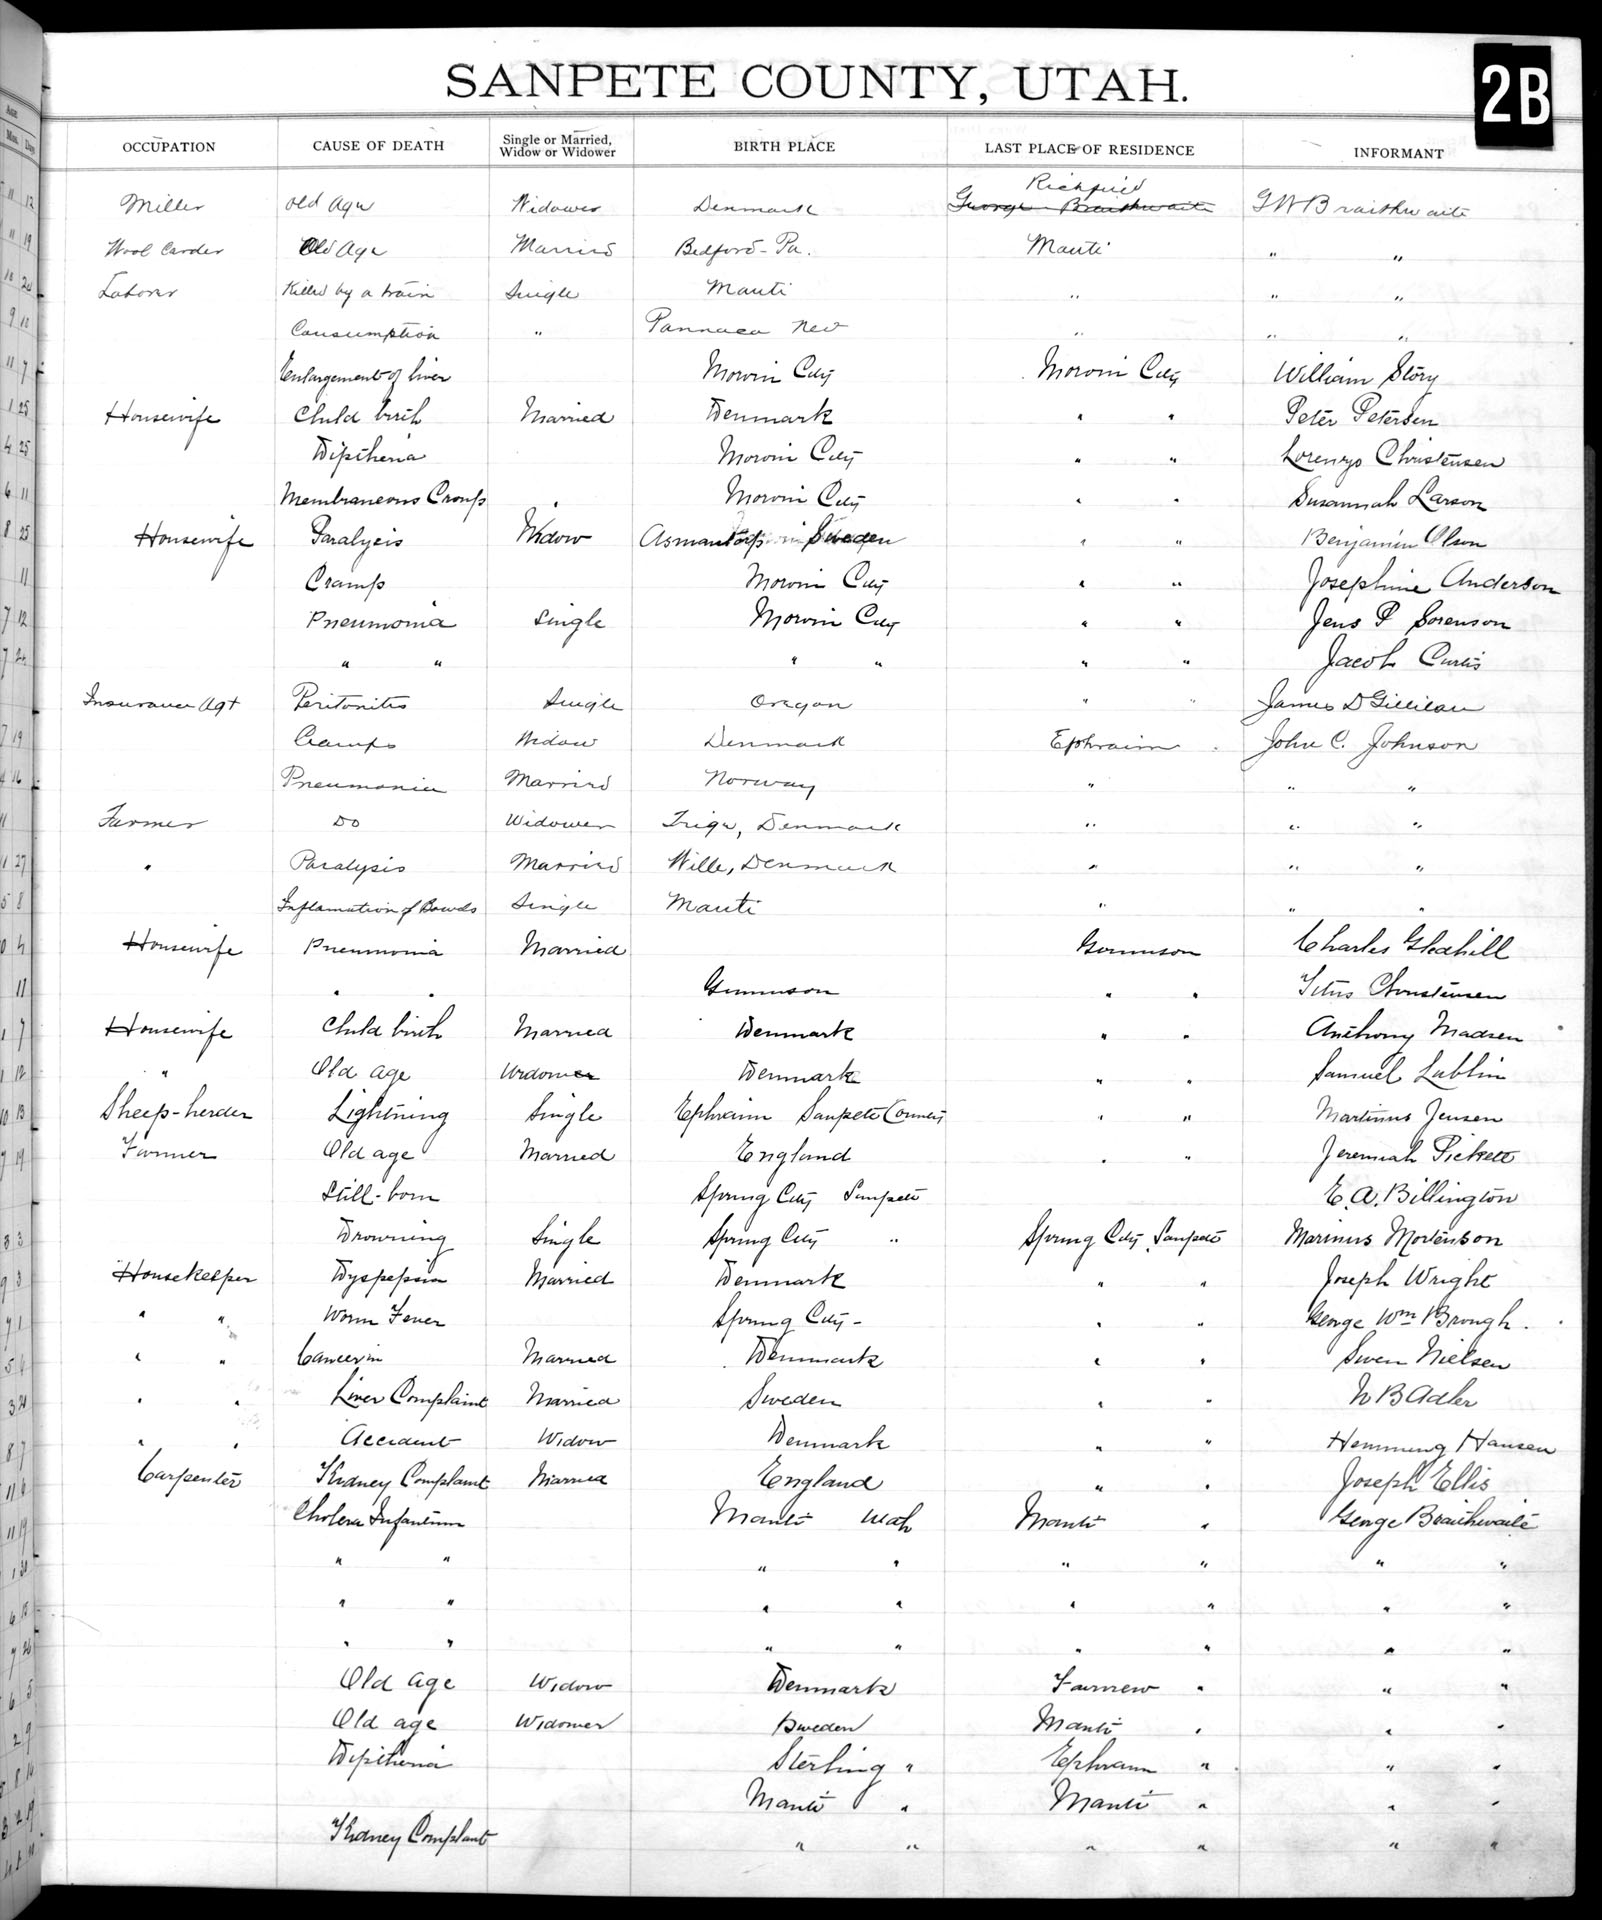 SANPETE COUNTY, UTAH.
2B
Age
Mos. Days
OCCUPATION CAUSE OF DEATH Single or Married, Widow or Widower BIRTH PLACE LAST PLACE OF RESIDENCE INFORMANT
11 12 Miller old Age Widower Denmark Richfield George Braithwaite G W Braithwaite
11 19 Wool Carder Old Age Married Bedford-Pa. Manti " "
10 20 Laborer Killed by a train Single Manti " " "
9 10 Consumption " Pannaca Nev " " "
11 7 Enlargement of liver Moroni City Moroni City William Story
1 25 Housewife Child birth Married Denmark " " Peter Petersen
4 25 Diptheria Moroni City " " Lorenzo Christensen
6 11 Membraneous Croup Moroni City " " Susannah Larson
8 25 Housewife Paralycis Widow Asmantorp Sweden " " Benjamin Olson
11 Cramp Moroni City " " Josephine Anderson
7 12 Pneumonia Single Moroni City " " Jens P Sorenson
7 24 " " " " " " Jacob Curtis
Insurance Agt Peritonitis Single Oregon " " James D Gillilan
7 19 Cramps Widow Denmark Ephraim John C. Johnson
4 16 Pneumonia Married Norway " " "
11 Farmer Do Widower Trige, Denmark " " "
1 27 " Paralysis Married Wille, Denmark " " "
5 8 Inflamation of Bowels Single Manti " " "
0 4 Housewife Pneumonia Married Gunnison Charles Gledhill
11 " " Gunnison " " Titus Christensen
1 7 Housewife Child birth Married Denmark " " Anthony Madsen
1 12 " Old Age Widower Denmark " " Samuel Lublin
10 13 Sheep-herder Lightning Single Ephraim Sanpete County " " Martinus Jensen
7 19 Farmer Old age Married England " " Jeremiah Pickett
Still-born Spring City Sanpete E. A. Billington
3 3 Drowning Single Spring City " Spring City Sanpete Marinus Mortenson
9 3 Housekeeper Dyspepsia Married Denmark " " Joseph Wright
7 1 " " Worm Fever Spring City- " " George Wm Brough.
5 4 " " Cancer in Married Denmark " " Swen Nielsen
3 21 " " Liver Complaint Married Sweden " " N B Adler
8 7 " " Accident Widow Denmark " " Hemming Hansen
11 6 Carpenter Kidney Complaint Married England " " Joseph Ellis
11 19 Cholera Infantum Manti Utah Manti " George Braithwaite
1 30 " " " " " " " "
6 15 " " " " " " " "
7 26 " " " " " " " "
6 5 Old age Widow Denmark Fairview " " "
2 9 Old age Widower Sweden Manti " " "
8 14 Diptheria Sterling " Ephraim " " "
2 19 Manti " Manti " " "
Kidney Complaint " " " " " "